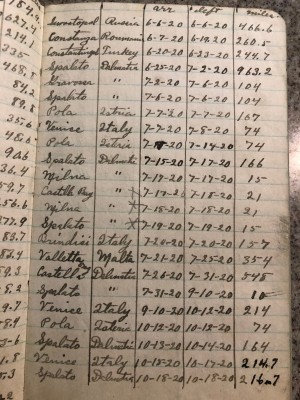 arr dept miles
184.9
627.4 Sevastopol Russia 6-6-20 6-6-20 466.6
214.4 Constanza Roumania 6-7-20 6-19-20 260.5
235 Constantinople Turkey 6-20-20 6-23-20 244.7
468.5 Spalato Dalmatia 6-25-20 7-2-20 963.2
84.4 Gravosa " 7-2-20 7-6-20 104
89.8 Spalato " 7-6-20 7-6-20 104
35.6 Pola Istria 7-7-20 7-7-20 167
Venice Italy 7-7-20 7-8-20 74
Pola Istria 7-8-20 7-14-20 74
906 Spalato Dalmatia 7-15-20 7-17-20 166
36.4 Milna " 7-17-20 7-17-20 15
59.7 Castelli Bay " 7-17-20 7-18-20 21
56.6 Milna " 7-18-20 7-18-20 21
277.9 Spalato " 7-19-20 7-19-20 15
83.7 Brindisi Italy 7-20-20 7-20-20 157
Valletta Malta 7-21-20 7-25-20 354
9.3 Castelli Dalmatia 7-26-20 7-31-20 548
8.2 Spalato " 7-31-20 9-10-20 10
9.7 Venice Italy 9-10-20 10-12-20 214
Pola Istria 10-12-20 10-12-20 74
Spalato Dalmatia 10-13-20 10-14-20 164
1.8 Venice Italy 10-15-20 10-17-20 214.7
5.3 Spalato Dalmatia 10-18-20 10-18-20 216.7